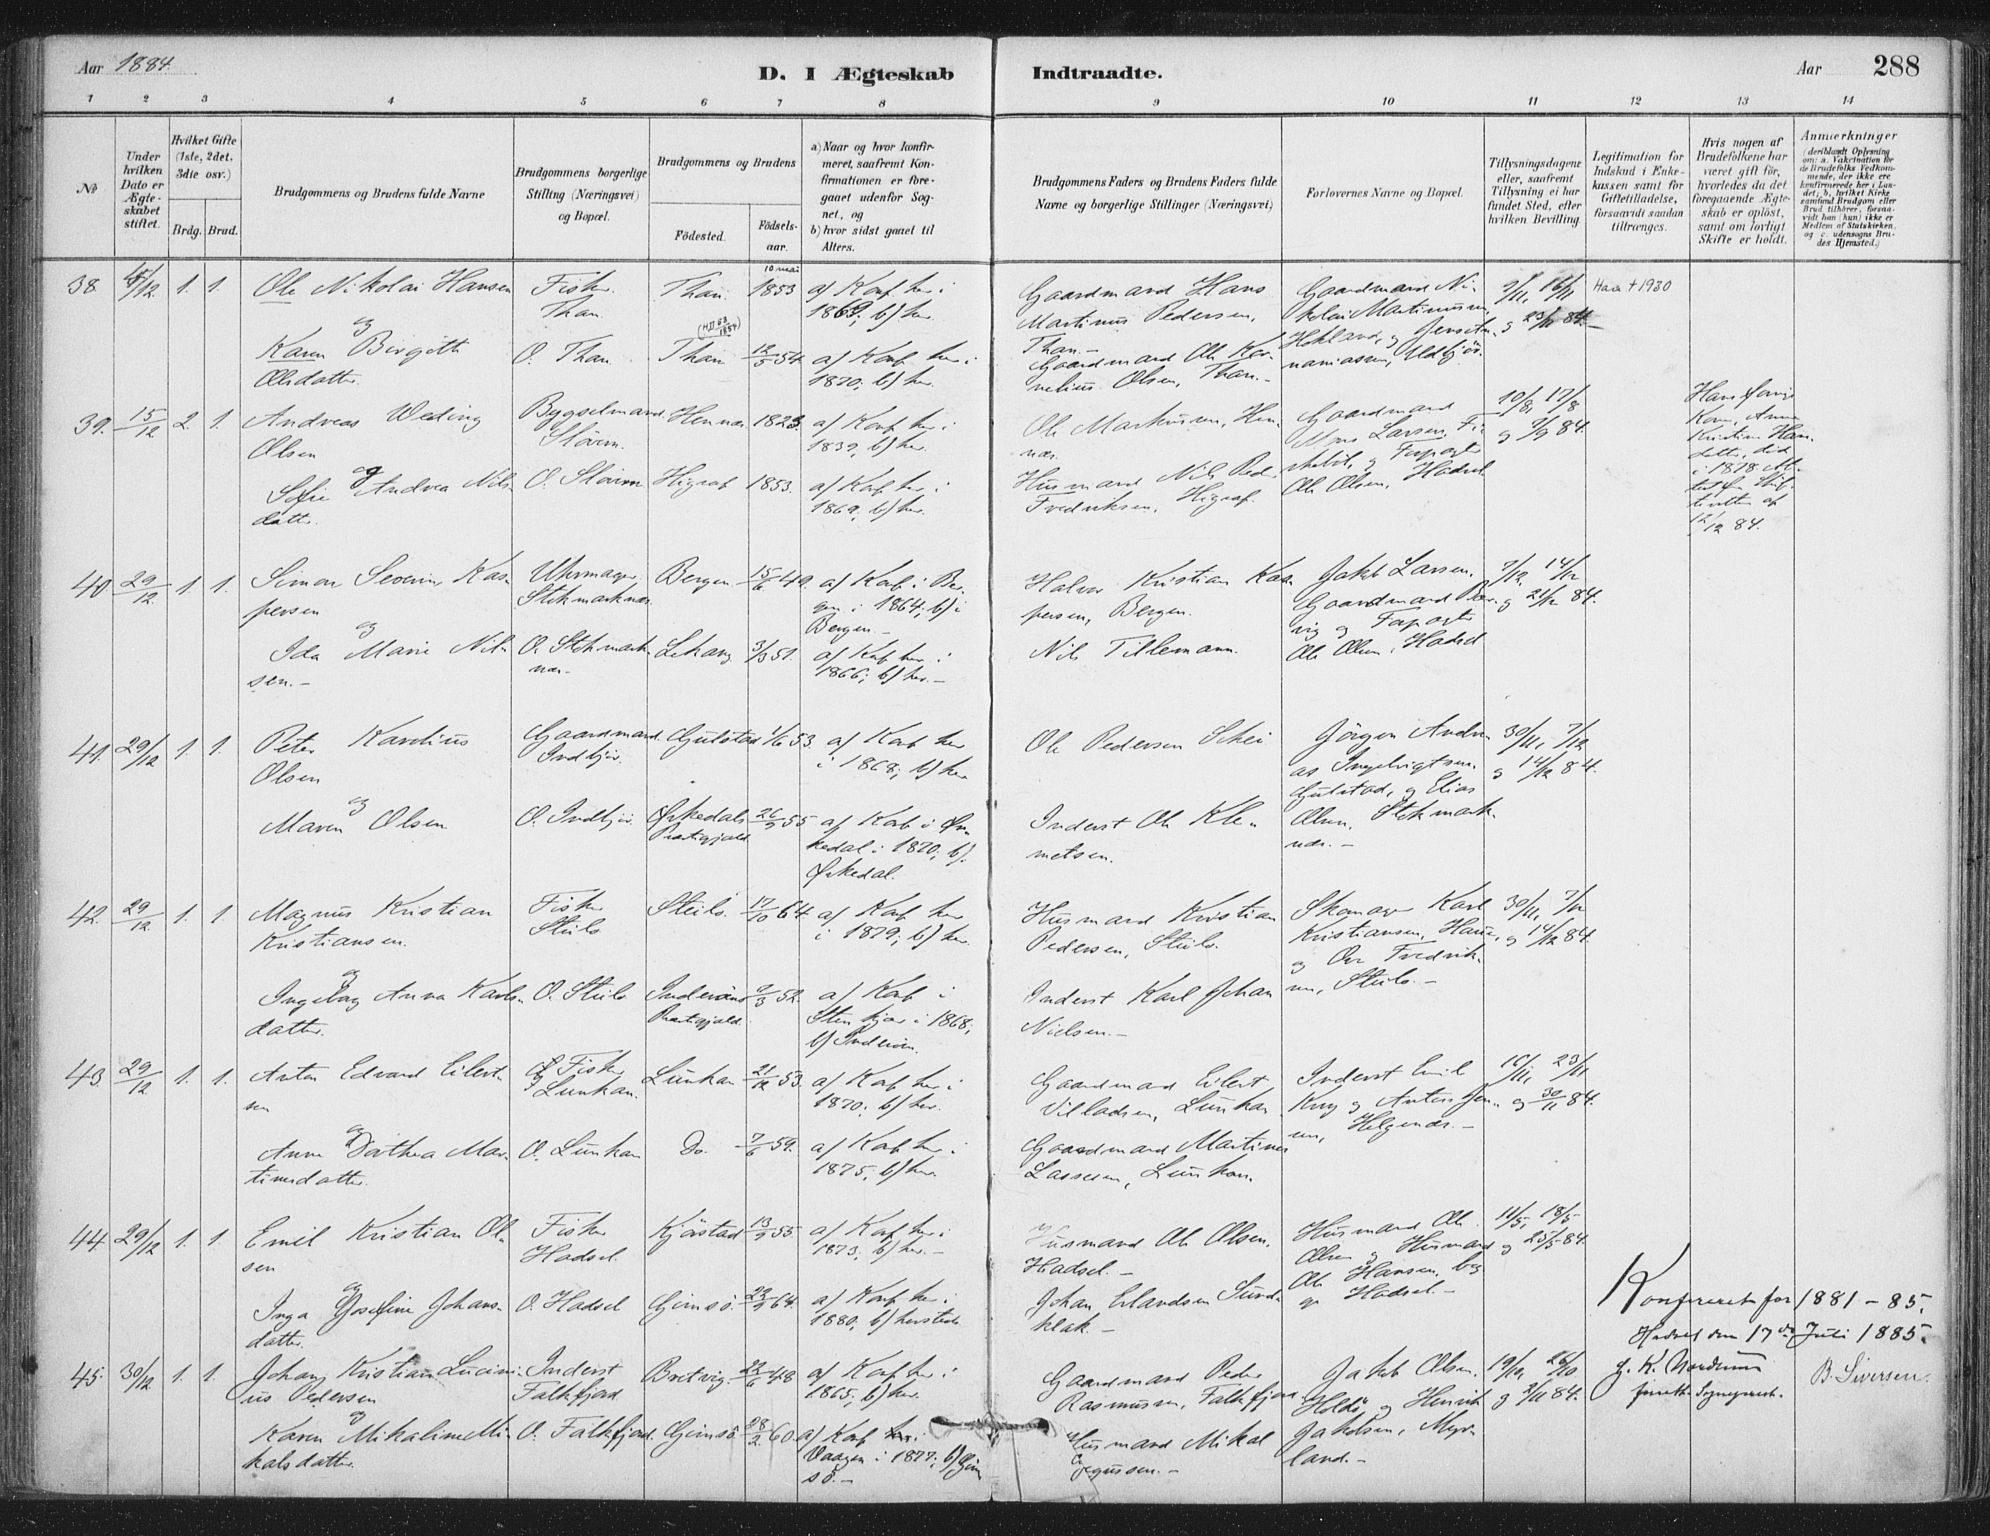 Aar 1884.
D. I Ægteskab Indtraadte.
Aar 288
1 2 3 4 5 6 7 8 9 10 11 12 13 14
No
Under hvilken Dato er Ægteskabet stiftet.
Hvilket Gifte (1ste, 2det, 3die osv.)
Brdg. Brud.
Brudgommens og Brudens fulde Navne
Brudgommens borgerlige Stilling (Næringsvei) og Bopæl.
Brudgommens og Brudens
Fødested. Fødselsaar.
a) Naar og hvor konfirmeret, saafremt Konfirmationen er foregaaet udenfor Sognet, og
b) hvor sidst gaaet til Alters.
Brudgommens Faders og Brudens Faders fulde Navne og borgerlige Stillinger (Næringsvei)
Forlovernes Navne og Bopæl.
Tillysningsdagene eller, saafremt Tillysning ei har fundet Sted, efter hvilken Bevilling.
Legitimation for Indskud i Enkekassen samt for Giftetilladelse, forsaavidt saadan tiltrænges.
Hvis nogen af Brudefolkene har været gift før, hvorledes da det foregaaende Ægteskab er opløst, samt om lovligt Skifte er holdt.
Anmærkninger
(deriblandt Oplysning om: a. Vakcination for de Brudefolks Vedkommende, der ikke ere konfirmerede her i Landet; b. hvilket Kirkesamfund Brudgom eller Brud tilhører, forsaavidt han (hun) ikke er Medlem af Statskirken, og c. udensogns Brudes Hjemsted.)
38 1. 1. Ole Nikolai Hansen Fisker Than. Than 10 mai 1853 a) Konf. her i 1869; b) her.
Gaardmand Hans Martinus Pedersen, Than.- Gaardmand Nikolai Martinussen, 9/11, 16/11 og 23/11 84.-
Haa + 1930
og Karen Birgith Olsdatter. O. Than. Than 12/5 54. a) Konf. her i 1870; b) her.
Gaardmand Ole Kornelius Olsen, Than.-
39. 15/12 2. 1. Andreas Weding Olsen Bygselmand Hennes 1823. a) Konf. her i 1839; b) her.
Ole Markussen, Hennes. Gaardmand Mons Larsen, 10/8, 17/8 og 84.
og Sofie Andrea Nilsdatter. O. 1853. a) Konf. her i 1869; b) her.
Husmand Nils Peder Fredriksen, og Ole Olsen, Hadsel
Hans Kone, Anna Kristine Hansdatter, død i 1878. 12/12 84.
40 29/12 1. 1. Simon Severin Kaspersen Uhrmager. Stokmarknes Bergen 15/6 49. a) Konf. i Bergen i 1864; b) i Bergen.-
Halvor Kristian Kaspersen, Bergen. Jakob Larsen, Gaardmand 7/12, 14/12 og 21/12 84.
og Ida Marie Nilsen.- O. Stokmarknes. 3/3 51. a) Konf. her i 1866; b) her.-
Nils Tillemann. og Ole Olsen, Hadsel
41. 29/12 1. 1. Peter Karelius Olsen Gaardmand. Indbjør. Gulstad 1/6 53. a) Konf. her i 1868; b) her
Ole Pedersen Skei Jörgen Andreas Gulstad, og Elias Olsen, Stokmarknes.- 30/11, 7/12 og 14/12 84.
og Maren Olsen O. Indbjør. Ørkedals Prestegjeld. 26/9 55 a) Konf. i Ørkedal i 1870; b) Ørkedal.
Inderst Ole Klemetsen.
42. 29/12 1. 1. Magnus Kristian Kristiansen. Fisker Steilo Steilo. 17/10 64. a) Konf. her i 1879; b) her.
Husmand Kristian Pedersen, Steilo. Skomager Karl Kristiansen, Haue, og Ove Fredriksen, Steilo.- 30/11, 7/12 og 14/12 84.
og Ingeborg Anna Karlsdatter. O. Steilo Inderøens Prestegjeld. 52. a) Konf. i Stenkjær i 1868; b) Inderøen.
Inderst Karl Johan Nielsen.-
43. 29/12 1. 1. Anton Edvard Eilertsen Fisker Lunkan. Lunkan 21/12 53. a) Konf. her i 1870; b) her.
Gaardmand Eilert Villadsen, Lunkan Inderst Emil Krog og Anton Jensen, Helgenes.- 16/11, 23/11 og 30/11 84.
og Anne Dorthea Martinusdatter. O. Lunkan Do. 7/6 59. a) Konf. her i 1875; b) her.
Gaardmand Martinus Lassesen, Lunkan.
44. 29/12 1. 1. Emil Kristian Olsen Fisker Hadsel. Kjørstad 13/9 55. a) Konf. her i 1873; b) her.-
Husmand Ole Olsen, Hadsel.- Husmand Ole Olsen og Husmand Ole Hansen, begge Hadsel.- 11/5, 18/5 og 25/5 84.
og Inga Josefine Johansdatter. O. Hadsel Gimsø. 64. a) Konf. her i 1880; b) hersteds
Johan Erlandsen Sundklak.-
Konfereret for 1881-85.
Hadsel den 17de Juli 1885.
45. 30/12 1. 1. Johan Kristian Lucinius Pedersen Inderst Falkfjord Bretvig. 22/6 48 a) Konf. her i 1865; b) her.
Gaardmand Peder Rasmussen, Falkfjord Jakob Olsen, Holdø, og Henrik Jakobsen, Myrland.- 19/10, 26/10 og 2/11 84.
G. K. Nordrum B. Siversen.
og Karen Mikaline Mikalsdatter. O. Falkfjord. Gimsø 28/2 60. a) Konf. i Vaagen i 1877; b) Gimsø.-
Husmand Mikal